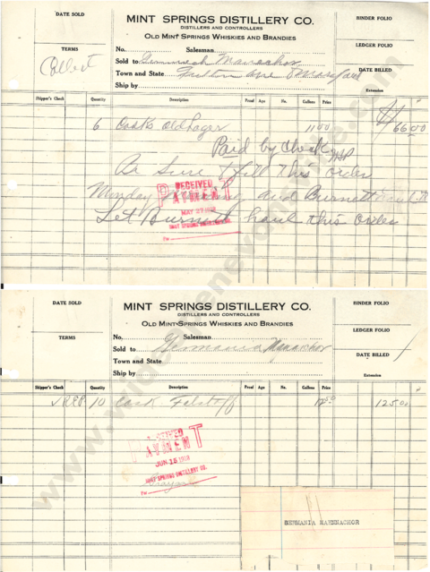 DATE SOLD
TERMS
Collect
MINT SPRINGS DISTILLERY CO.
DISTILLERS AND CONTROLLERS
OLD MINT-SPRINGS WHISKIES AND BRANDIES
No. Salesman
Sold to
Town and State Fulton Ave
Ship by
BINDER FOLIO
LEDGER FOLIO
DATE BILLED
Shipper's Check Quantity Description Proof Age Ga. Gallons Price Extension
6 Casks Old Lager 11 00 66 00
Paid by Check
Be Sure & fill this order
Monday and Burnett
Let Burnett haul this order
RECEIVED
PAYMENT
MAY
MINT SPRING DISTILLERY CO.
DATE SOLD
TERMS
MINT SPRINGS DISTILLERY CO.
DISTILLERS AND CONTROLLERS
OLD MINT-SPRINGS WHISKIES AND BRANDIES
No. Salesman
Sold to Germania
Town and State
Ship by
BINDER FOLIO
LEDGER FOLIO
DATE BILLED
Shipper's Check Quantity Description Proof Age Ga. Gallons Price Extension
10 Cask Falstaff 12 50 125 00
PAYMENT
JUN 15
MINT SPRING DISTILLERY CO.
GERMANIA MAENNACHOR